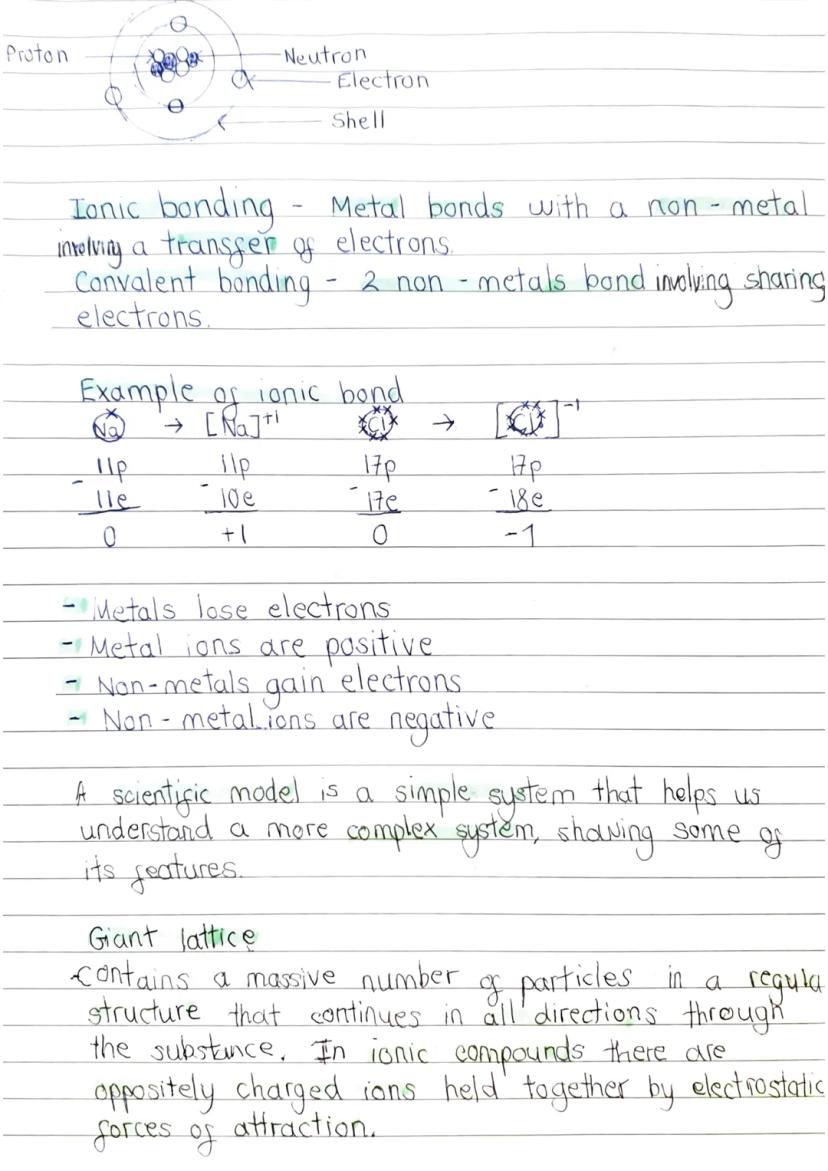 Proton
Neutron
Electron
Shell
Ionic bonding - Metal bonds with a non-metal
involving a transfer of electrons.
Convalent bonding - 2 non-metals bond involving sharing
electrons.
Example of ionic bond
Na → [Na]+1 Cl → [Cl]-1
11p 11p 17p 17p
- 11e - 10e - 17e - 18e
0 +1 0 -1
- Metals lose electrons
- Metal ions are positive
- Non-metals gain electrons
- Non-metal ions are negative
A scientific model is a simple system that helps us
understand a more complex system, showing some of
its features.
Giant lattice
contains a massive number of particles in a regula
structure that continues in all directions through
the substance. In ionic compounds there are
oppositely charged ions held together by electrostatic
forces of attraction.